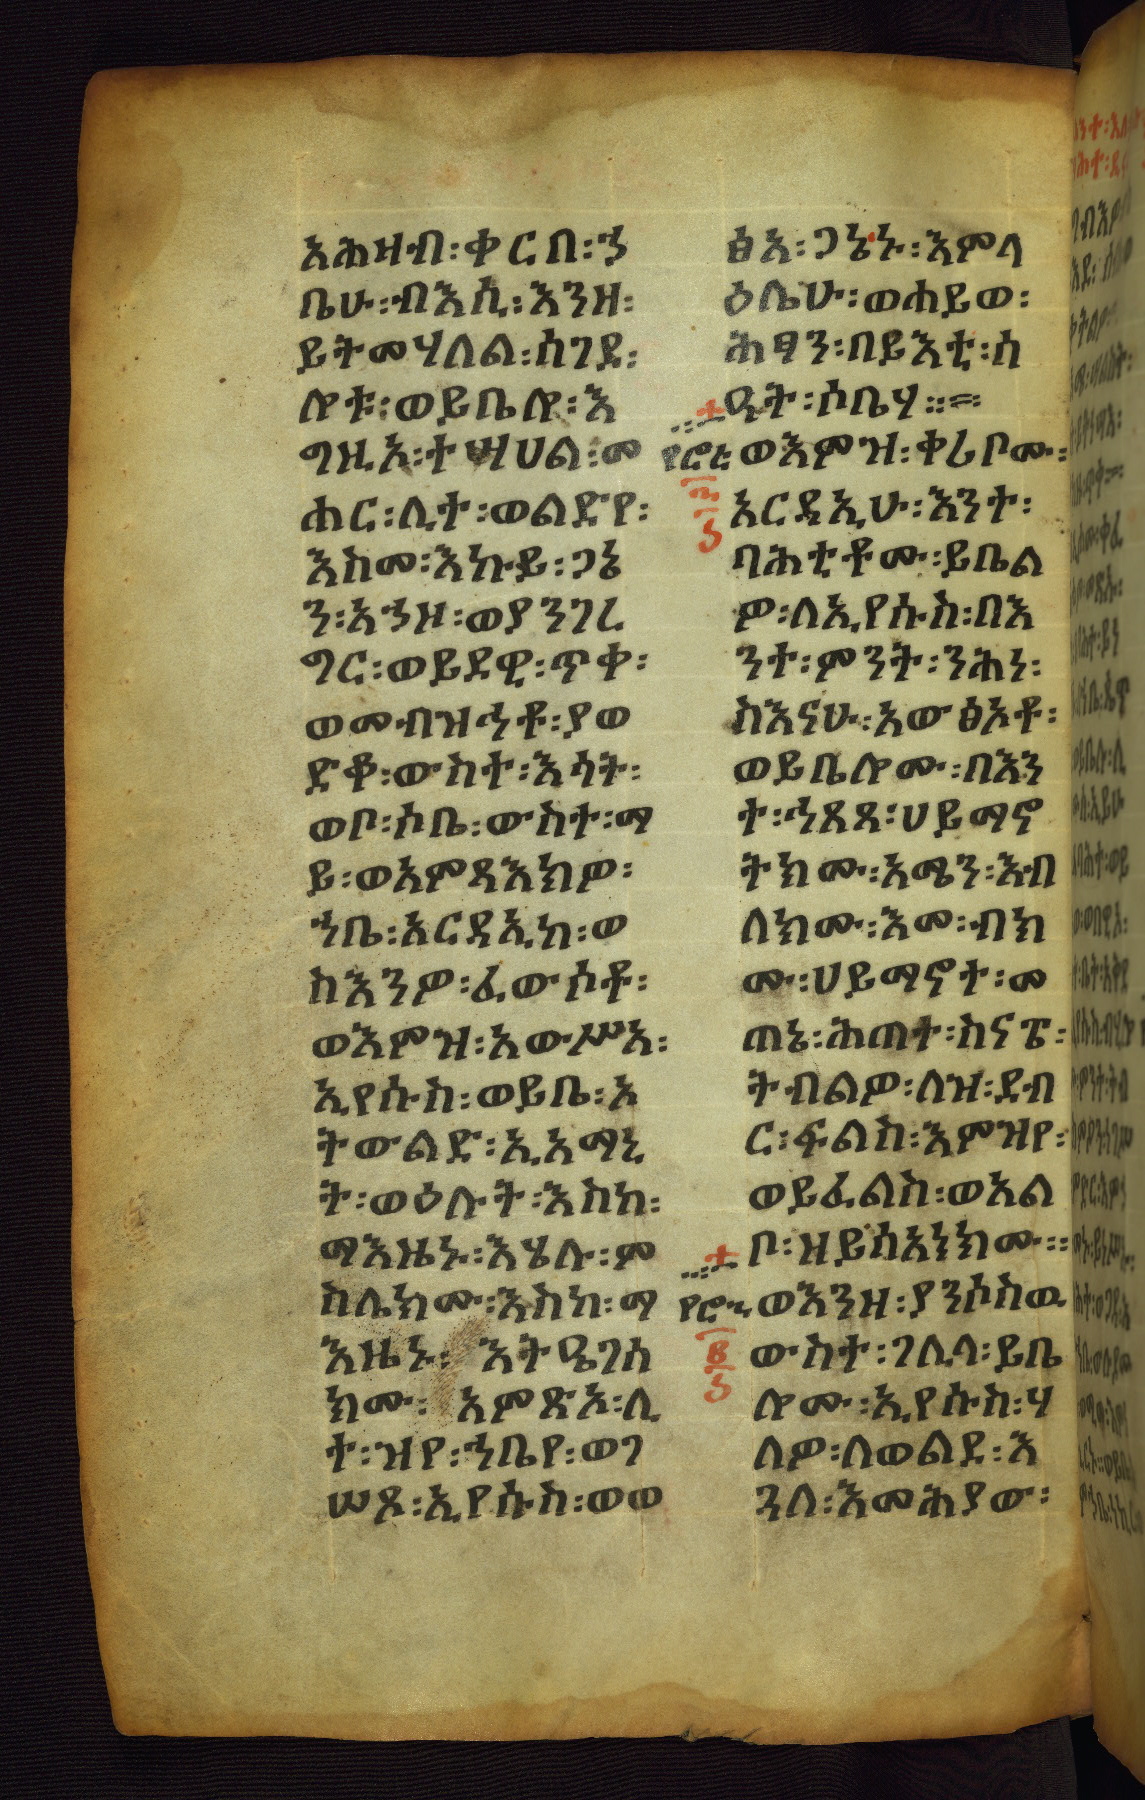 አሕዛብ፡ቀርበ፡ኀ
ቤሁ፡ብእሲ፡እንዘ፡
ይትመሃለል፡ሰገደ፡
ሎቱ፡ወይቤሎ፡እ
ግዚኦ፡ተሣሀል፡መ
ሐር፡ሊተ፡ወልድየ፡
እስመ፡እኩይ፡ጋኔ
ን፡አኀዞ፡ወያንገረ
ግር፡ወይደዊ፡ጥቀ፡
ወመብዝኅቶ፡ያወ
ድቆ፡ውስተ፡እሳት፡
ወቦ፡ሶቤ፡ውስተ፡ማ
ይ፡ወአምጻእክዎ፡
ኀቤ፡አርዳኢከ፡ወ
ስእንዎ፡ፈውሶቶ፡
ወእምዝ፡አውሥአ፡
ኢየሱስ፡ወይቤ፡ኦ
ትውልድ፡ኢአማኒ
ት፡ወዕሉት፡እስከ፡
ማእዜኑ፡እሄሉ፡ም
ስሌክሙ፡እስከ፡ማ
እዜኑ፡እትዔገሰ
ክሙ፡አምጽኦ፡ሊ
ተ፡ዝየ፡ኀቤየ፡ወገ
ሠጾ፡ኢየሱስ፡ወወ
ፅአ፡ጋኔኑ፡እምላ
ዕሌሁ፡ወሐይወ፡
ሕፃን፡በይእቲ፡ሰ
ዓት፡ሶቤሃ።
ወእምዝ፡ቀሪቦሙ፡
አርዳኢሁ፡እንተ፡
ባሕቲቶሙ፡ይቤል
ዎ፡ለኢየሱስ፡በእ
ንተ፡ምንት፡ንሕነ፡
ስእናሁ፡አውፅኦቶ፡
ወይቤሎሙ፡በእን
ተ፡ኅጸጸ፡ሀይማኖ
ትክሙ፡አሜን፡እብ
ለክሙ፡እመ፡ብክ
ሙ፡ሀይማኖት፡መ
ጠነ፡ሕጠተ፡ስናፔ፡
ትብልዎ፡ለዝ፡ደብ
ር፡ፍልስ፡እምዝየ፡
ወይፈልስ፡ወአል
ቦ፡ዘይሰአነክሙ።
ወእንዘ፡ያንሶስዉ
ውስተ፡ገሊላ፡ይቤ
ሎሙ፡ኢየሱስ፡ሃ
ለዎ፡ለወልደ፡እ
ጓለ፡እመሕያው፡